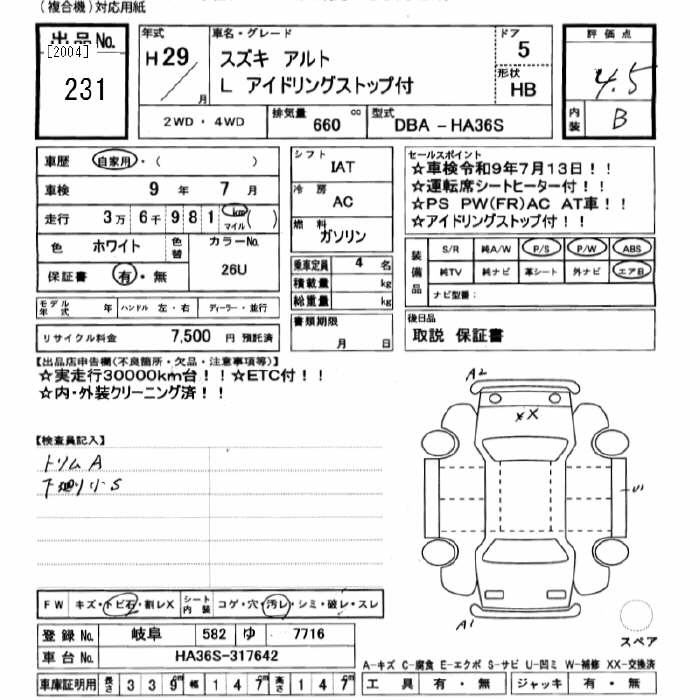 (複合機)対応用紙
出品No.
[2004]
231
年式
H 29 / 月
車名・グレード
スズキ アルト
L アイドリングストップ付
ドア
5
形状
HB
評価点
4.5
内装
B
2WD・4WD
排気量 660 cc
型式 DBA-HA36S
車歴 自家用・( )
車検 9 年 7 月
走行 3万 6千 9 8 1 km マイル ( )
色 ホワイト 色替
カラーNo. 26U
保証書 有・無
モデル年式 年 ハンドル 左・右 ディーラー・並行
リサイクル料金 7,500 円 預託済
シフト IAT
冷房 AC
燃料 ガソリン
乗車定員 4 名
積載量 kg
総重量 kg
書類期限
月 日
セールスポイント
☆車検令和9年7月13日!!
☆運転席シートヒーター付!!
☆PS PW(FR)AC AT車!!
☆アイドリングストップ付!!
装備品
S/R 純A/W P/S P/W ABS
純TV 純ナビ 革シート 外ナビ エアB
ナビ型番:
後日品
取説 保証書
【出品店申告欄(不良箇所・欠品・注意事項等)】
☆実走行30000km台!!☆ETC付!!
☆内・外装クリーニング済!!
【検査員記入】
トリムA
下廻り小S
A2
X
U1
A1
スペア
FW キズ・トビ石・割レX
シート内装 コゲ・穴・汚レ・シミ・破レ・スレ
登録No. 岐阜 582 ゆ 7716
車台No. HA36S-317642
車庫証明用 長さ 3 3 9m 幅 1 4 7m 高さ 1 4 7m
A-キズ C-腐食 E-エクボ S-サビ U-凹ミ W-補修 XX-交換済
工具 有・無 ジャッキ 有・無